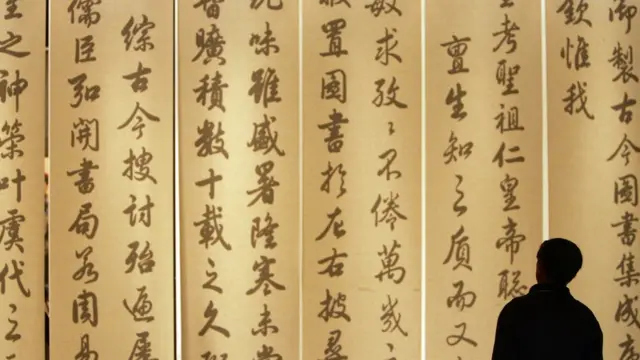 御製古今圖書集成序
欽惟我
皇考聖祖仁皇帝聰
亶生知之質而又
敏求孜〻不倦萬幾之
暇置圖書於左右披尋
玩味雖盛暑隆寒未嘗
暫曠積數十載之久
綜古今搜討殆遍屢
儒臣弘開書局若周易
之神筞叶虞代之